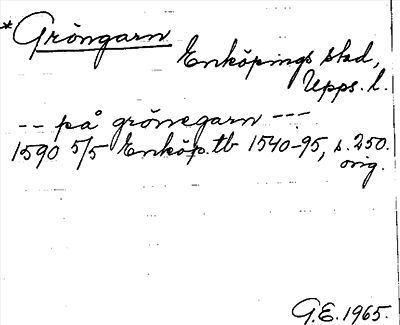 *Gröngarn
Enköpings stad,
Upps. l.
-- på grönegarn ---
1590 5/5 Enköp. tb 1540-95, s. 250.
orig.
G.E. 1965.